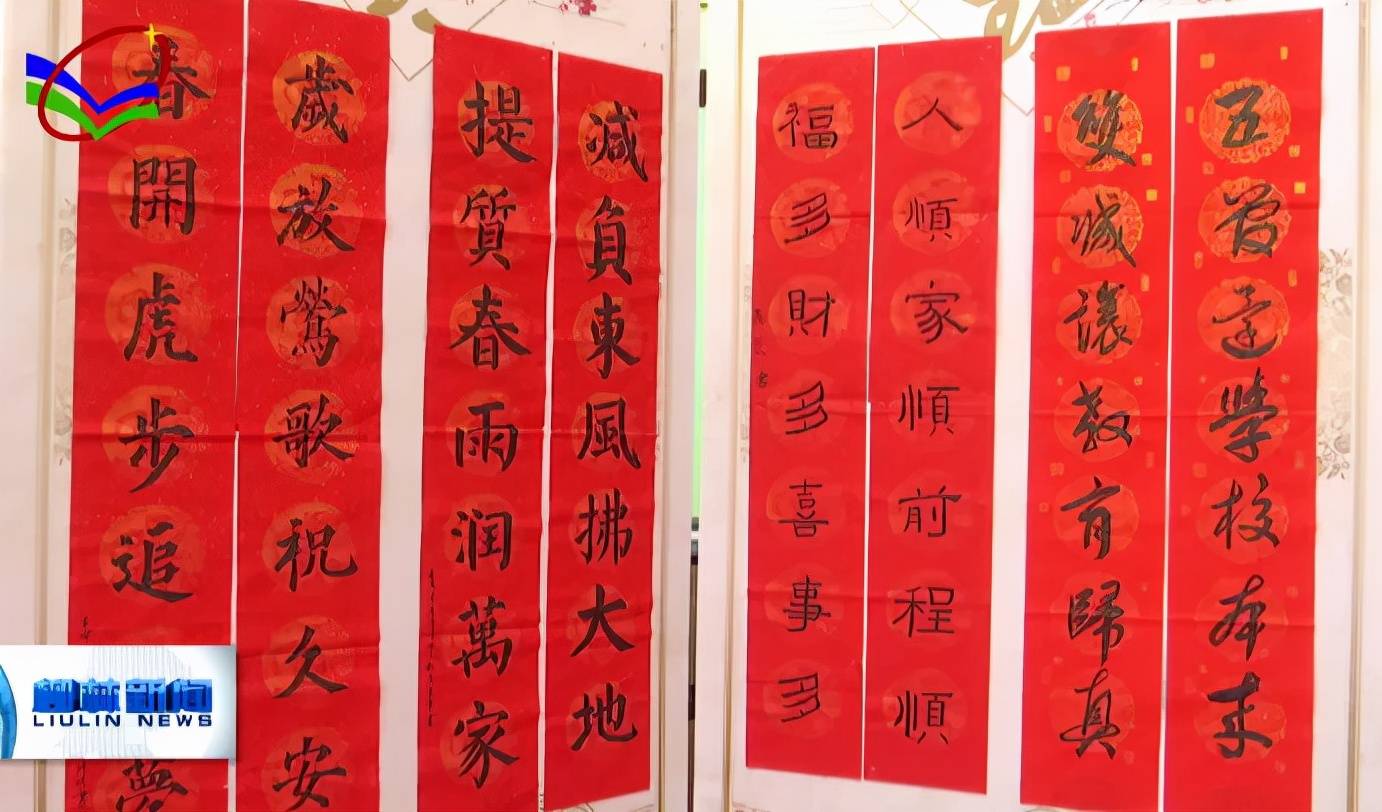 五管還學校本来
雙减讓教育歸真
人順家順前程順
福多財多喜事多
減負東風拂大地
提質春雨润萬家
歲放鶯歌祝久安
春開虎步追
柳林新闻
LIULIN NEWS